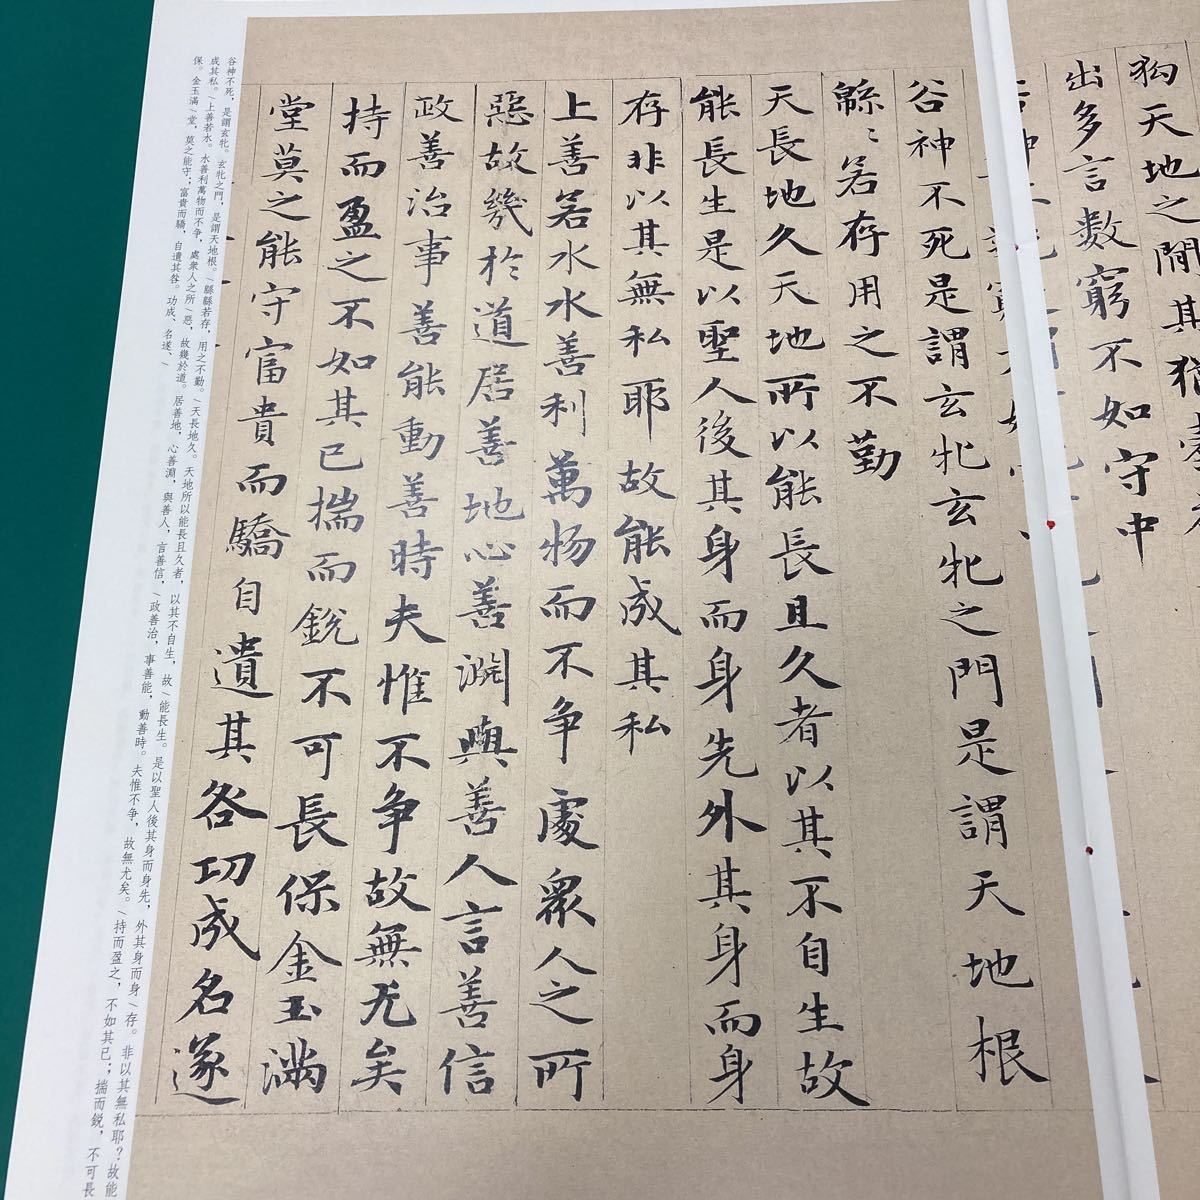 狗天地之間其猶橐
出多言數窮不如守中
谷神不死是謂玄牝玄牝之門是謂天地根
緜〻若存用之不勤
天長地久天地所以能長且久者以其不自生故
能長生是以聖人後其身而身先外其身而身
存非以其無私耶故能成其私
上善若水水善利萬物而不争處衆人之所
惡故幾於道居善地心善淵與善人言善信
政善治事善能動善時夫惟不争故無尤矣
持而盈之不如其已揣而鋭不可長保金玉滿
堂莫之能守富貴而驕自遺其咎功成名遂
谷神不死，是謂玄牝。玄牝之門，是謂天地根。/緜緜若存，用之不勤。/天長地久。天地所以能長且久者，以其不自生，故/能長生。是以聖人後其身而身先，外其身而身/存。非以其無私耶？故能
成其私。/上善若水。水善利萬物而不争，處衆人之所/惡，故幾於道。居善地，心善淵，與善人，言善信，/政善治，事善能，動善時。夫惟不争，故無尤矣。/持而盈之，不如其已；揣而鋭，不可長
保。金玉滿/堂，莫之能守；富貴而驕，自遺其咎。功成、名遂、/